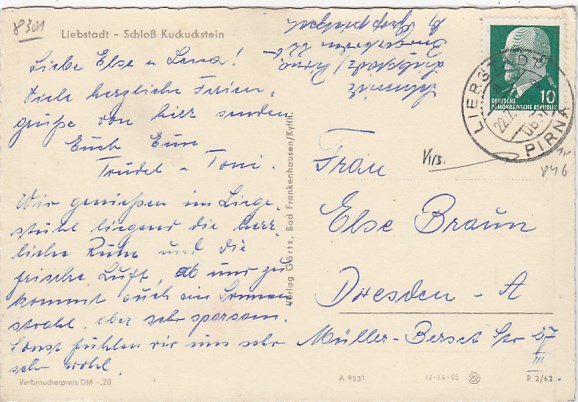 8301
Liebstadt - Schloß Kuckuckstein
Liebe Else u Lena!
Viele herzliche Ferien-
grüße von hier senden
Euch Eure
Trudel u Toni.
Wir genießen im Liege-
stuhl liegend die herr-
liche Ruhe und die
frische Luft, ab und zu
kommt auch ein Sonnen-
strahl, aber sehr sparsam.
Sonst fühlen wir uns sehr
sehr wohl.
Verbraucherpreis DM -,20
Schmidt
Liebstadt/Pirna
22
b
Verlag Görtz, Bad Frankenhausen/Kyffh.
10
DEUTSCHE
DEMOKRATISCHE REPUBLIK
LIEBSTADT
22.7.
PIRNA
846
Frau
Else Braun
Dresden - A
Müller-Berset Str 27
III
A 9531
P 2/62